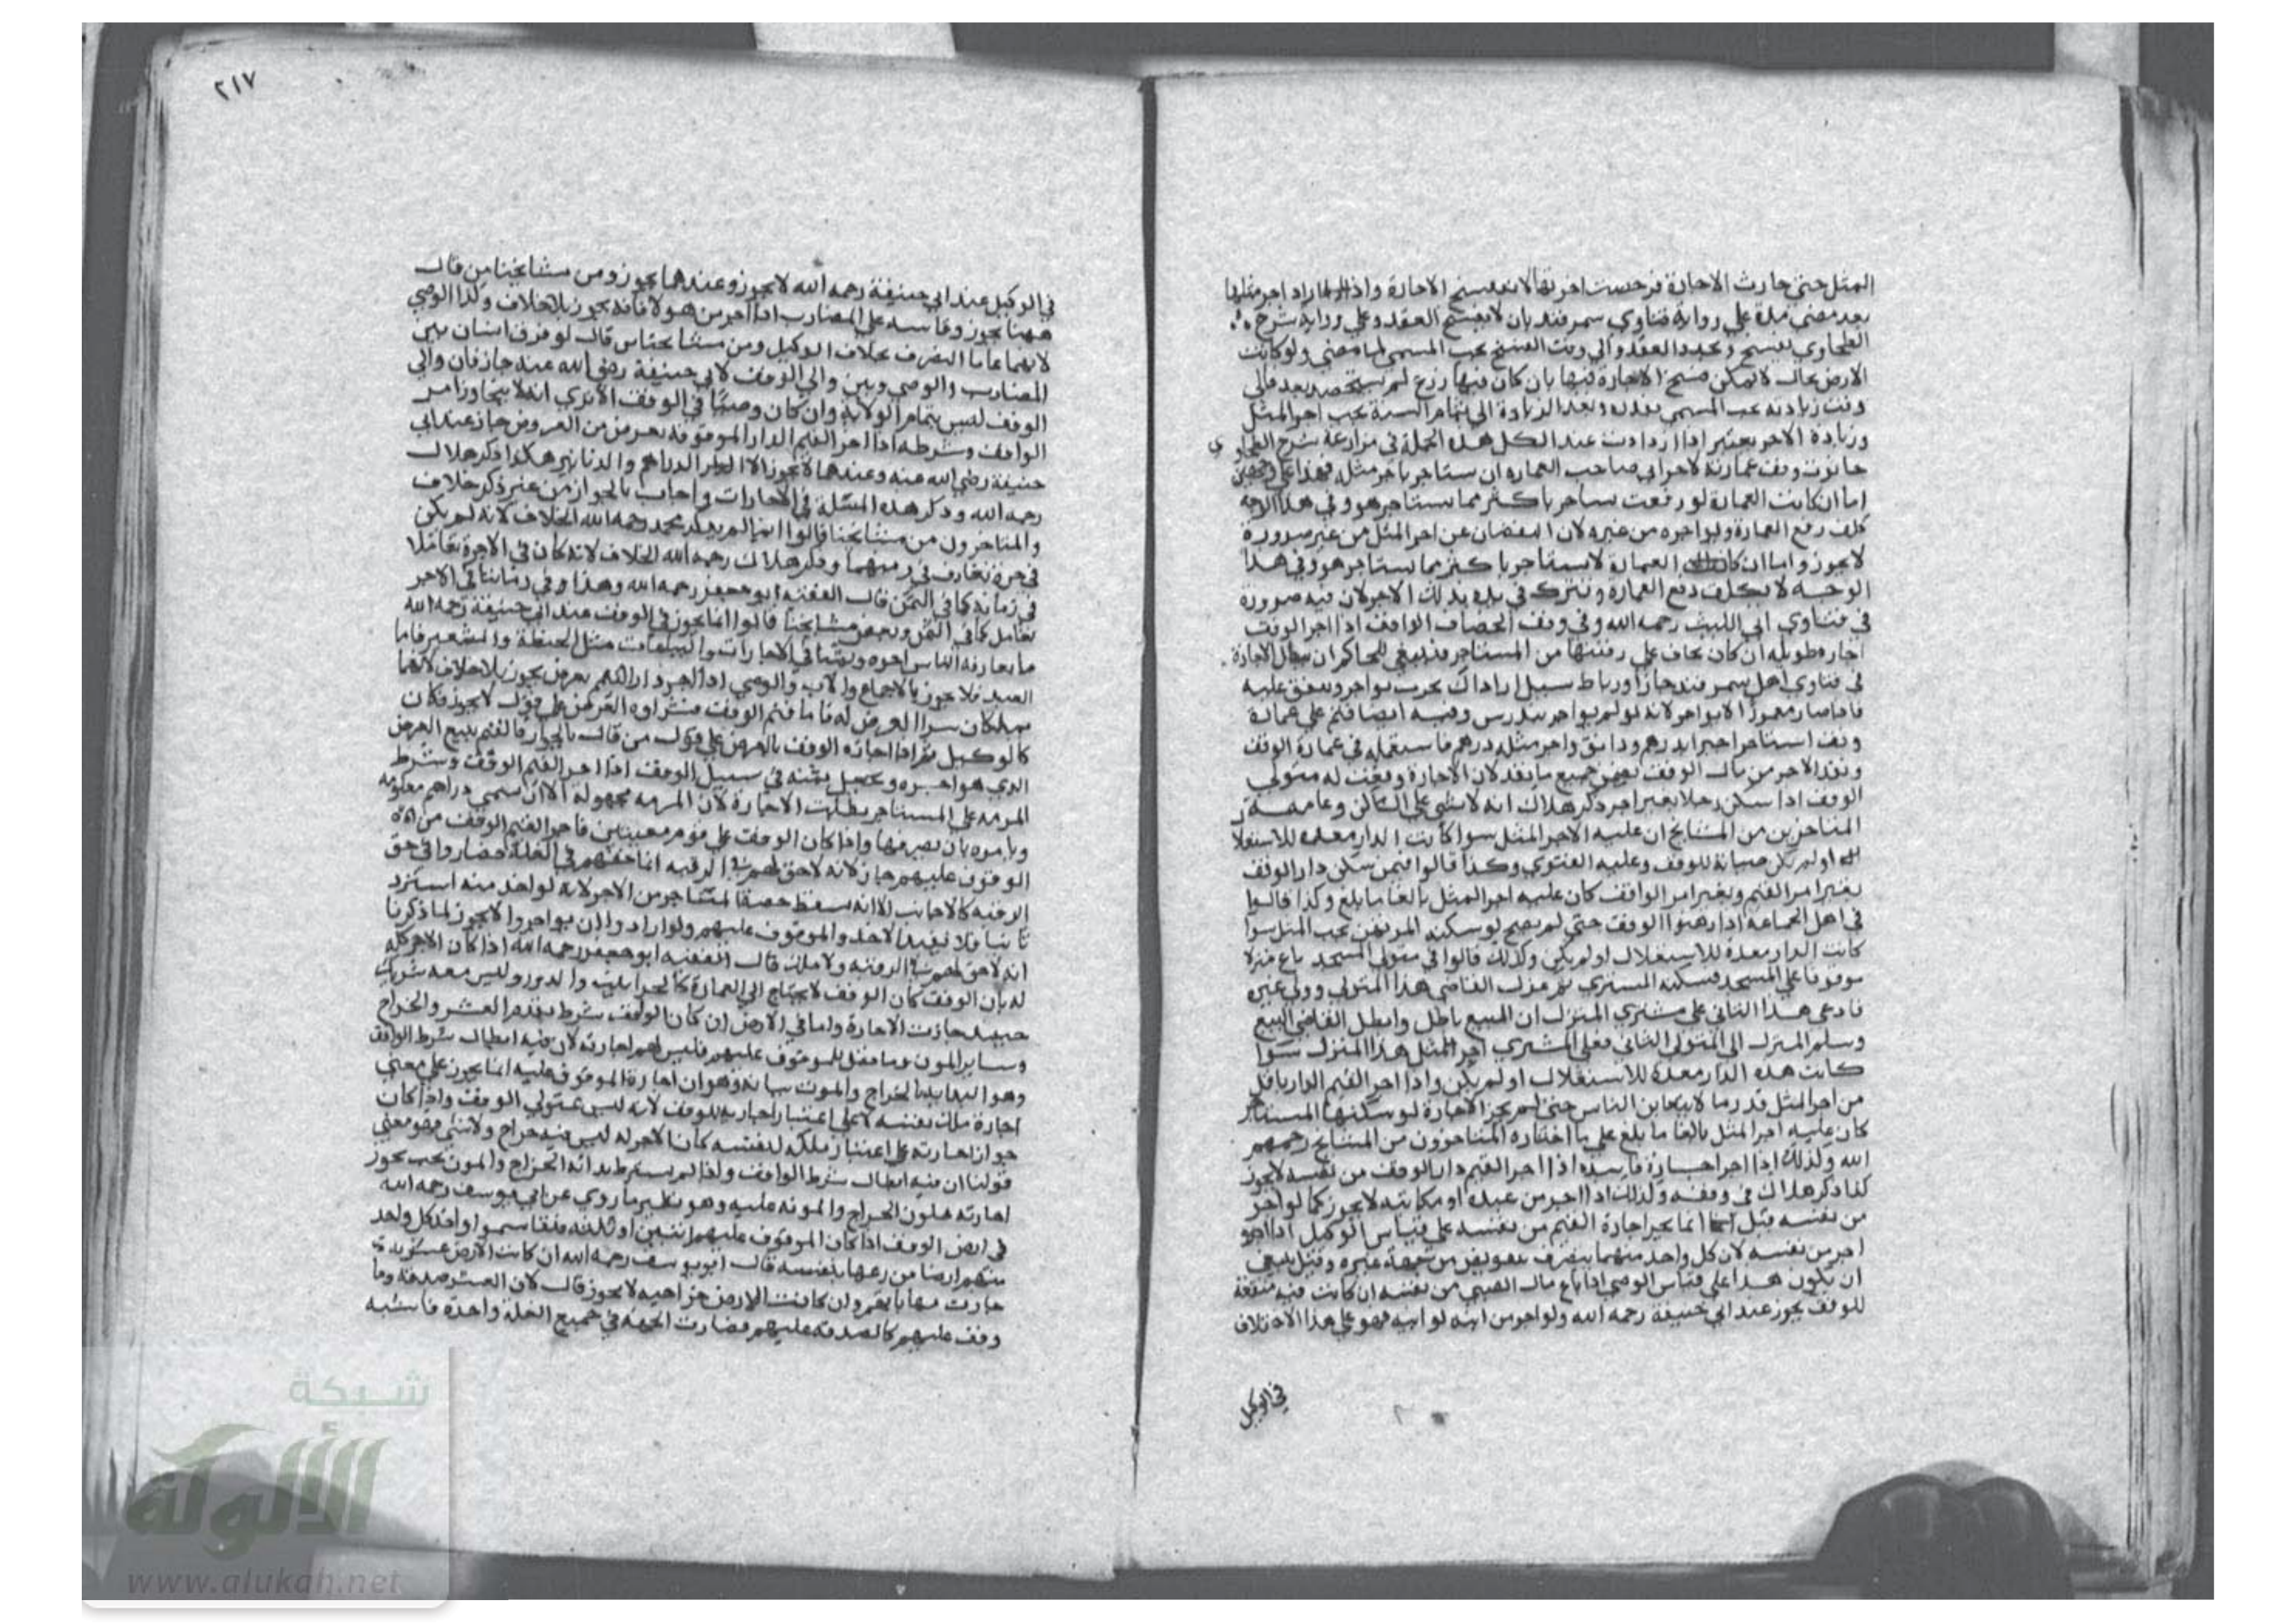 المثل حتى جازت الاجارة فرخصت اجرتها لا تنفسخ الاجارة واذا ازداد اجر مثلها
بعد مضي مدة علي رواية فتاوي سمرقند بان لا يفسخ العقد وعلي رواية شرح
الطحاوي يفسخ ويجدد العقد والي وقت الفسخ يجب المسمي لما مضي ولو كانت
الارض بحال لا يمكن فسخ الاجارة فيها بان كان فيها زرع لم يستحصد بعد فالي
وقت زيادته يجب المسمي بقدره وبعد الزيادة الي تمام السنة يجب اجر المثل
وزيادة الاجر يعتبر اذا ازدادت عند الكل هذه الجملة في مزارعة شرح الطحاوي
حانوت وقف عمارته لاجر ابي صاحب العمارة ان يستاجر باجر مثله فهذا علي وجهين
اما ان كانت العمارة لو رفعت يستاجر باكثر مما يستاجر هو وفي هذا الوجه
كلف رفع العمارة ويواجره من غيره لان النقصان عن اجر المثل من غير ضرورة
لا يجوز واما ان كان العمارة لا يستاجر باكثر مما يستاجر هو وفي هذا
الوجه لا يكلف رفع العمارة ويترك في يده بذلك الاجر لان فيه ضرورة
في فتاوي ابي الليث رحمه الله وفي وقف الخصاف الواقف اذا اجر الوقف
اجارة طويلة ان كان يخاف علي رقبتها من المستاجر فينبغي للحاكم ان يبطل الاجارة
في فتاوي اهل سمرقند خان او رباط سبيل اراد ان يخرب يواجر وينفق عليه
فاذا صار معمورا لا يواجر لانه لو لم يواجر يندرس وفيه ايضا قيم علي عمارة
وقف استاجر اجيرا بدرهم ودانق واجر مثله درهم فاستعمله في عمارة الوقف
ونقد الاجر من مال الوقف يضمن جميع ما نقد لان الاجارة وقعت له متولي
الوقف اذا سكن رجلا بغير اجر ذكر هلال انه لا شي علي الساكن وعامة
المتاخرين من المشايخ ان عليه الاجر المثل سوا كانت الدار معدة للاستغلال
او لم يكن صيانة للوقف وعليه الفتوي وكذا قالوا فيمن سكن دار الوقف
بغير امر القيم وبغير امر الواقف كان عليه اجر المثل بالغا ما بلغ وكذا قالوا
في اهل الجماعة اذا رهنوا الوقف حتى لم يصح لو سكنه المرتهن يجب المثل سوا
كانت الدار معدة للاستغلال او لم يكن وكذلك قالوا في متولي المسجد باع منزلا
موقوفا علي المسجد فسكنه المشتري ثم عزل القاضي هذا المتولي وولي غيره
فادعي هذا الثاني علي مشتري المنزل ان البيع باطل وابطل القاضي البيع
وسلم المنزل الي المتولي الثاني فعلي المشتري اجر المثل هذا المنزل سوا
كانت هذه الدار معدة للاستغلال او لم يكن واذا اجر القيم الدار باقل
من اجر المثل قدر ما لا يتغابن الناس حتى لم يجز الاجارة لو سكنها المستاجر
كان عليه اجر المثل بالغا ما بلغ علي ما اختاره المتاخرون من المشايخ رحمهم
الله وكذلك اذا اجر اجارة فاسدة اذا اجر القيم دار الوقف من نفسه لا يجوز
كذا ذكر هلال في وقفه وكذلك اذا اجر من عبده او مكاتبه لا يجوز كما لو اجر
من نفسه قيل انما يجز اجارة القيم من نفسه علي قياس الوكيل اذا اجر
اجر من نفسه لان كل واحد منهما يتصرف بتفويض من جهة غيره وقيل ينبغي
ان يكون هذا علي قياس الوصي اذا باع مال الصبي من نفسه ان كانت فيه منفعة
للوقف يجوز عند ابي حنيفة رحمه الله ولو اجر من ابنه او ابيه فهو علي هذا الاختلاف
في الوكيل
٢١٧
في الوكيل عند ابي حنيفة رحمه الله لا يجوز وعندهما يجوز ومن مشايخنا من قال
ههنا يجوز وقاسه علي المضارب اذا اجر من هولا فانه يجوز بلا خلاف وكذا الوصي
لانهما عاما التصرف بخلاف الوكيل ومن مشايخنا من قال لو فرق انسان بين
المضارب والوصي وبين والي الوقف لابي حنيفة رضي الله عنه جاز فان والي
الوقف ليس بتمام الولاية وان كان وصيا في الوقف الا تري انه لا يتجاوز امر
الواقف وشرطه اذا اجر القيم الدار الموقوفة بعرض من العروض جاز عند ابي
حنيفة رضي الله عنه وعندهما لا يجوز الا الدراهم والدنانير هكذا ذكر هلال
رحمه الله وذكر هذه المسئلة في الاجارات واجاب بالجواز من غير ذكر خلاف
والمتاخرون من مشايخنا قالوا انما لم يذكر محمد رحمه الله الخلاف لانه لم يكن
في جرة تعارف في زمنهما وذكر هلال رحمه الله الخلاف لانه كان في الاجرة تعاملا
في زمانه كما في الثمن قال الفقيه ابو جعفر رحمه الله وهذا وفي زماننا في الاجر
تعامل كما في الثمن وبعض مشايخنا قالوا انما يجوز في الوقف عند ابي حنيفة رحمه الله
ما تعارفه الناس اجره وثمنا في الاجارات والبياعات مثل الحنطة والشعير فاما
العبيد فلا يجوز بالاجماع والاب والوصي اذا اجر دار اليتيم بعرض يجوز بلا خلاف لانهما
يملكان شرا العرض له فاما قيم الوقف فشراوه العرض علي قول لا يجوز فكان
كالوكيل ثم اذا اجاره الوقف بالعرض علي قول من قال بالجواز فالقيم يبيع العرض
الذي هو اجره ويجعل ثمنه في سبيل الوقف اذا اجر القيم الوقف وشرط
المرمة علي المستاجر بطلت الاجارة لان المرمة مجهولة الا ان يسمي دراهم معلومة
ويامره بان يصرفها واذا كان الوقف علي قوم معينين فاجر القيم الوقف من
الموقوف عليهم جاز لانه لا حق لهم في الرقبة انما حقهم في الغلة فصاروا في حق
الرقبة كالاجانب الا انه يسقط حصة المستاجر من الاجر لانه لو اخذ منه استرد
ثانيا فلا يفيد الاخذ والموقوف عليهم ولو ارادوا ان يواجروا لا يجوز لما ذكرنا
انه لا حق لهم في الرقبة ولا ملك قال الفقيه ابو جعفر رحمه الله اذا كان الاجر كله
له بان الوقف كان الوقف لا يحتاج الي العمارة كالحوانيت والدور وليس معه شريك
حينئذ جازت الاجارة واما في الارض ان كان الواقف شرط تقديم العشر والخراج
وساير المون وما فضل للموقوف عليهم فليس لهم اجارته لان فيه ابطال شرط الواقف
وهو البداية بالخراج والمون بيانه وهو ان اجارة الموقوف عليه انما يجوز علي معني
اجارة ملك نفسه لا علي اعتبار اجارته للوقف لانه ليس بمتولي الوقف واذا كان
جواز اجارته علي اعتبار ملكه لنفسه كان الاجر له ليس فيه خراج ولا شي فهو معني
قولنا ان فيه ابطال شرط الواقف ولو لم يشترط بداية الخراج والمون يجب يجوز
اجارته فلون الخراج والمونه عليه وهو نظير ما روي عن ابي يوسف رحمه الله
في ارض الوقف اذا كان الموقوف عليهم اثنين او ثلثة فتقاسموا واخذ كل واحد
منهم ارضا من زرعها بنفسه قال ابو يوسف رحمه الله ان كانت الارض عشرية
جازت مهاياتهم وان كانت الارض خراجية لا يجوز قال لان العشر صدقة وما
وقف عليهم كالصدقة عليهم فصارت الجهة في جميع الغلة واحدة فاشبه
شبكة
الألوكة
www.alukah.net